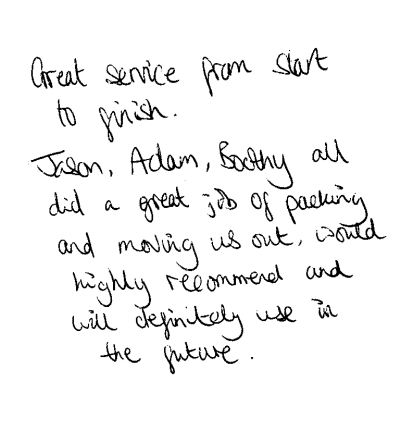 Great service from start
to finish.
Jason, Adam, Boothy all
did a great job of packing
and moving us out, would
highly recommend and
will definitely use in
the future.